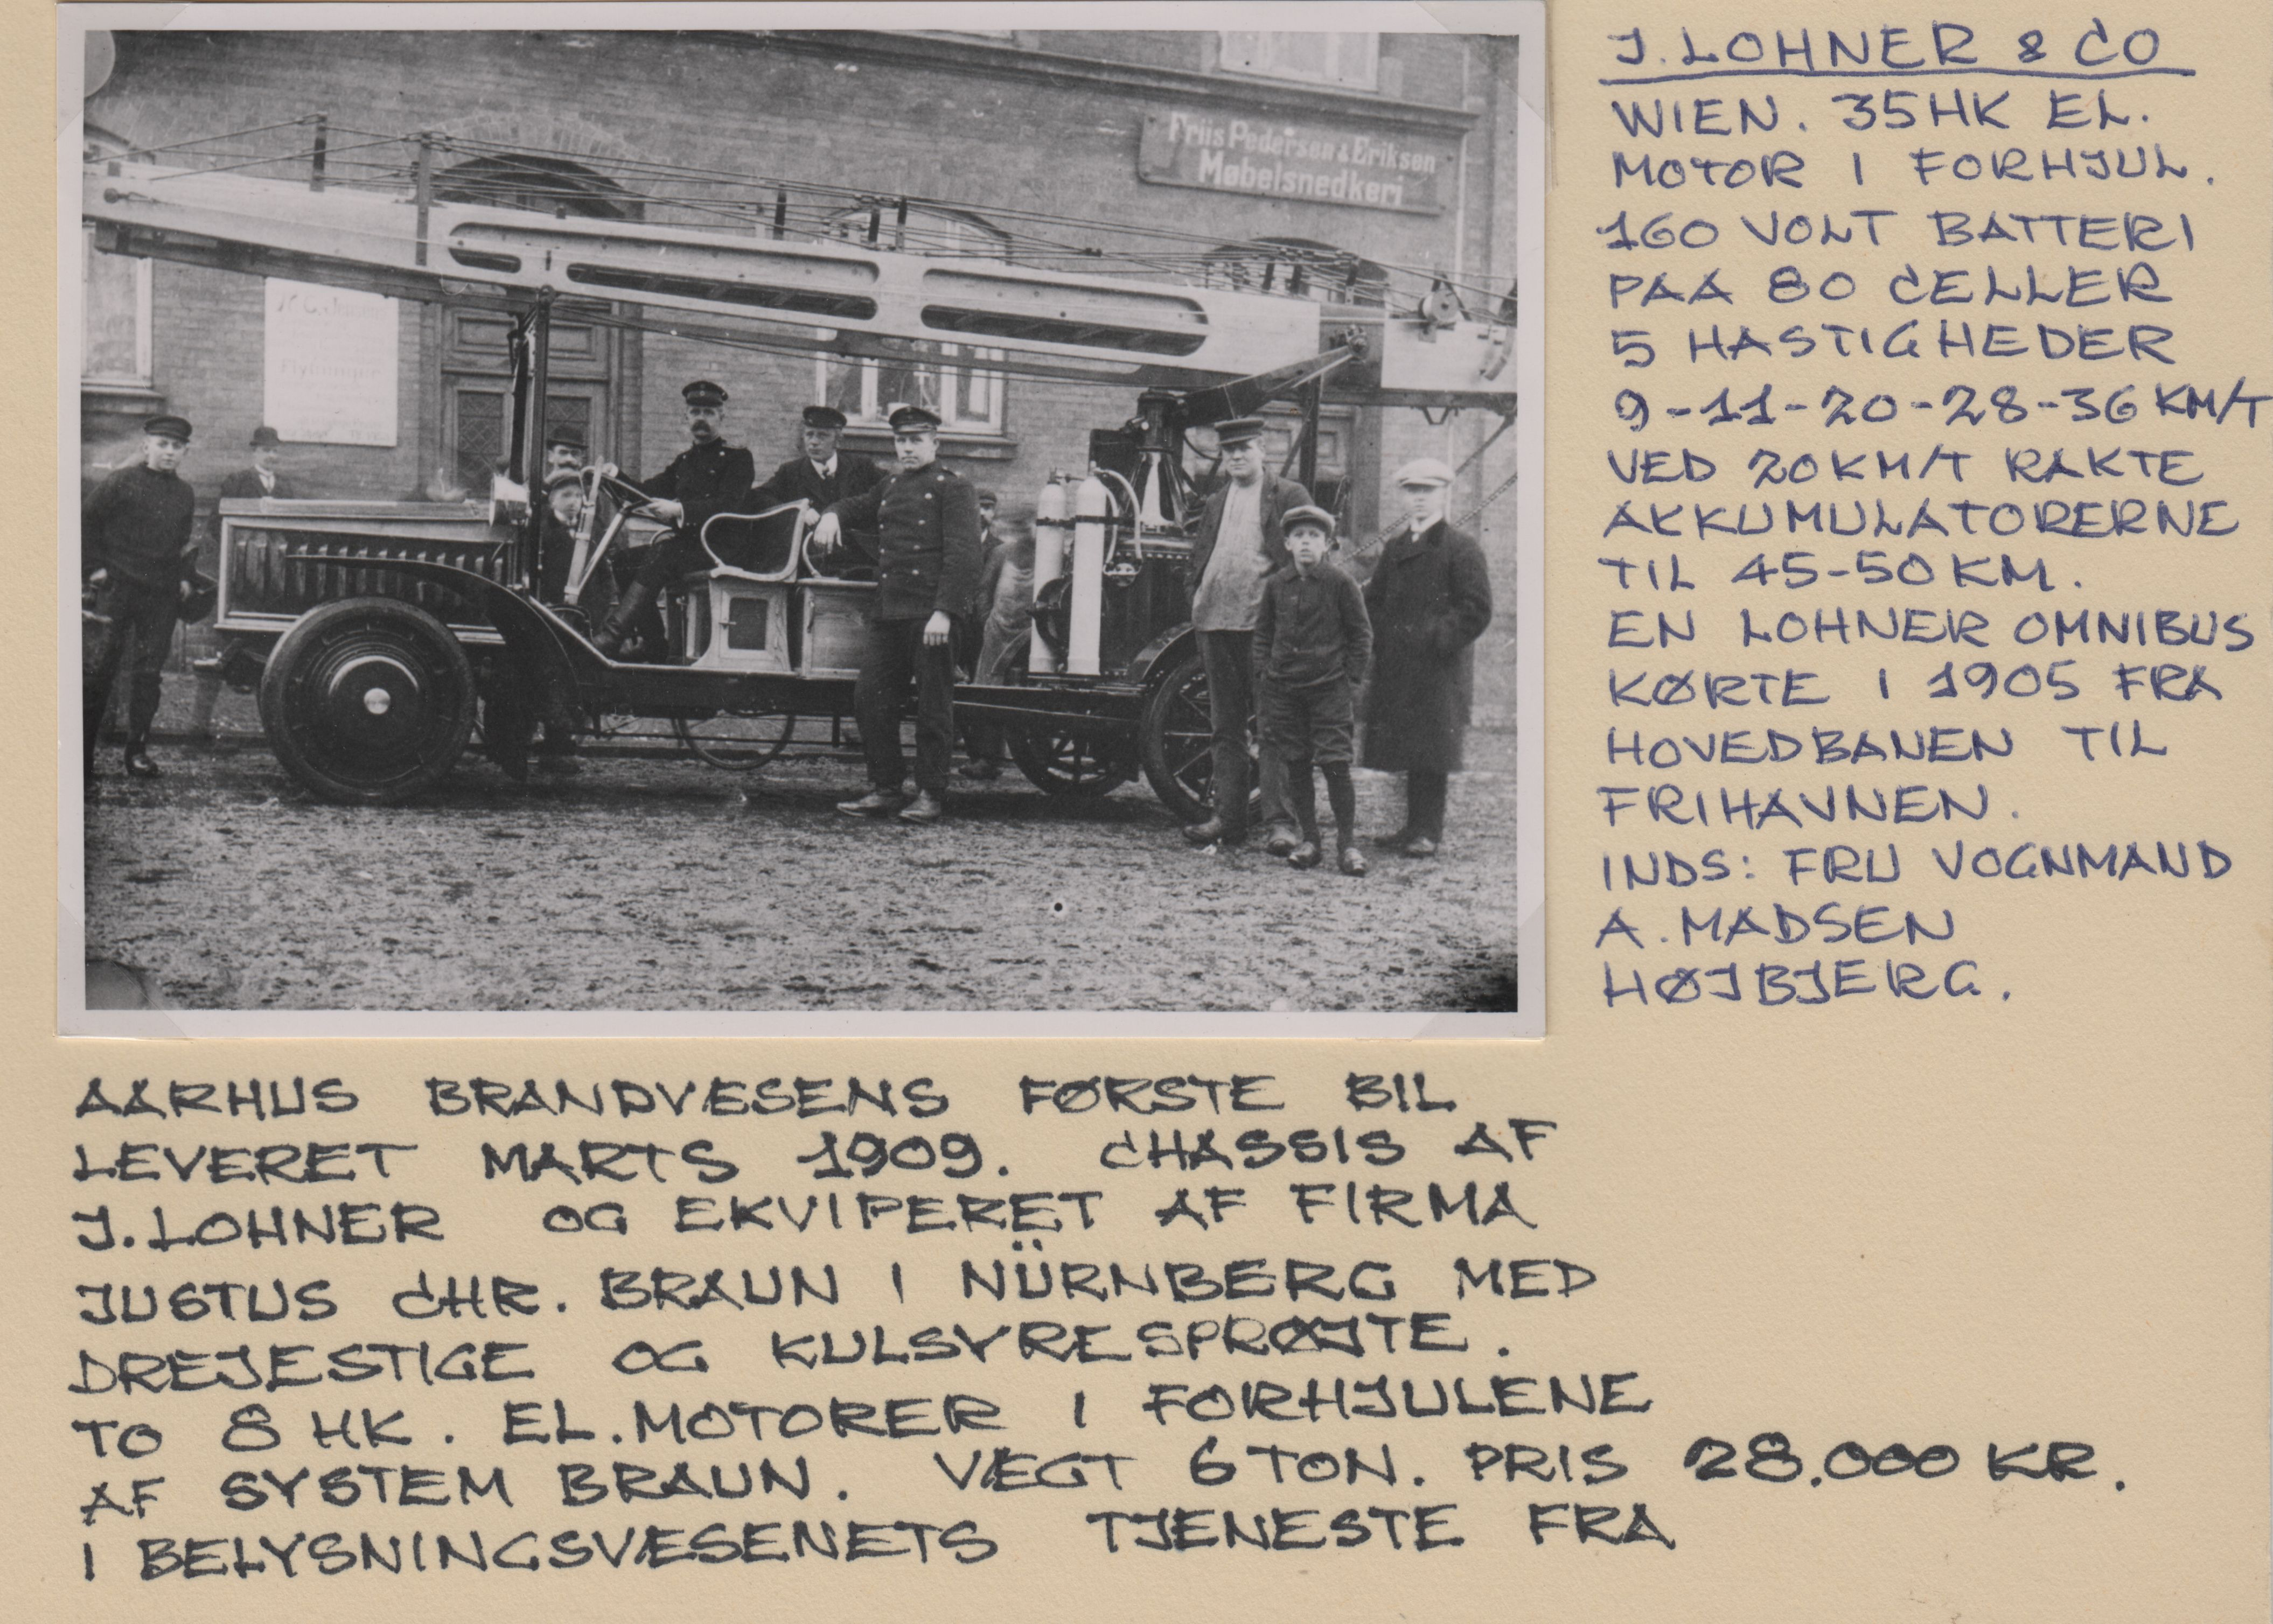 Friis Pedersen & Eriksen
Møbelsnedkeri
J. LOHNER & CO
WIEN. 35 HK EL.
MOTOR I FORHJUL.
160 VOLT BATTERI
PAA 80 CELLER
5 HASTIGHEDER
9-11-20-28-36 KM/T
VED 20 KM/T RAKTE
AKKUMULATORERNE
TIL 45-50 KM.
EN LOHNER OMNIBUS
KØRTE I 1905 FRA
HOVEDBANEN TIL
FRIHAVNEN.
INDS: FRU VOGNMAND
A. MADSEN
HØJBJERG.
AARHUS BRANDVÆSENS FØRSTE BIL
LEVERET MARTS 1909. CHASSIS AF
J. LOHNER OG EKVIPERET AF FIRMA
JUSTUS CHR. BRAUN I NÜRNBERG MED
DREJESTIGE OG KULSYRESPRØJTE.
TO 8 HK. EL. MOTORER I FORHJULENE
AF SYSTEM BRAUN. VÆGT 6 TON. PRIS 28.000 KR.
I BELYSNINGSVÆSENETS TJENESTE FRA